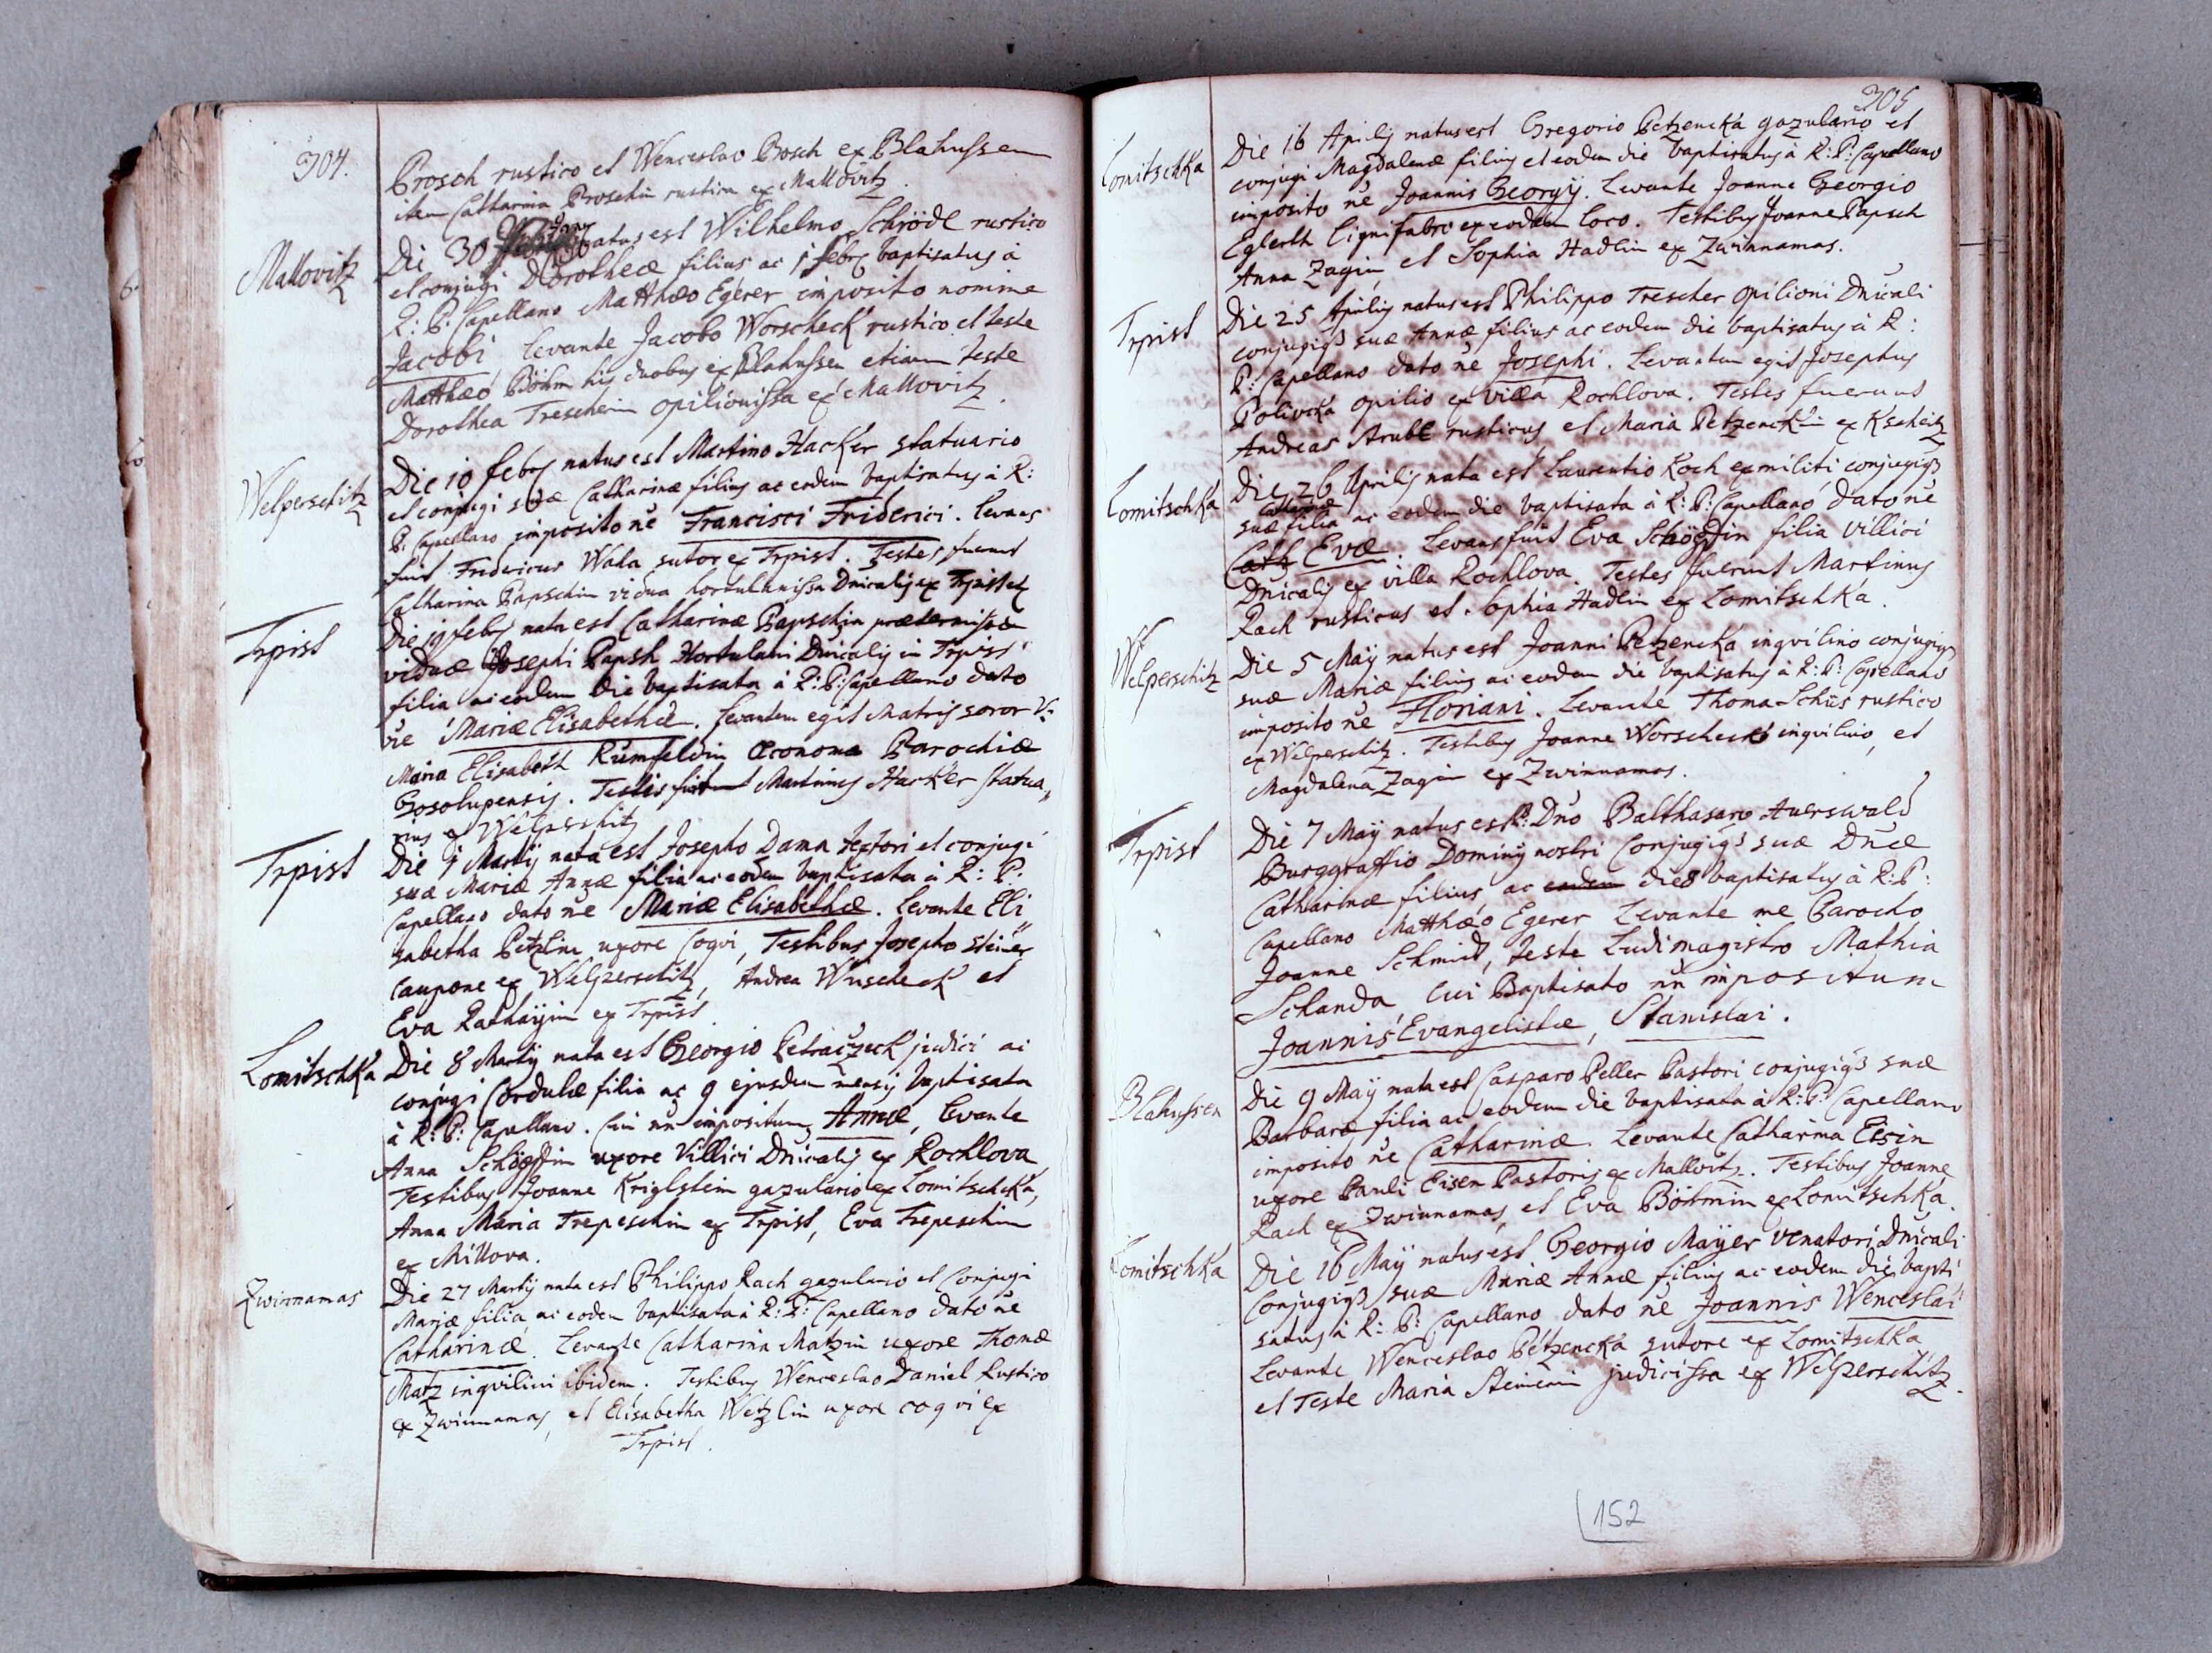 304.
Brosch rustico et Wenceslao Brosch ex Blahussen
item Catharina Broschin rustica ex Mallovitz.
Mallovitz
Die 30 Janu natus est Wilhelmo Schrödl rustico
et conjugi Dorotheæ filius ac 1 febrs baptisatus à
R: P: Capellano Matthæo Egerer imposito nomine
Jacobi, Levante Jacobo Worscheck rustico et teste
Matthæo Böhm his duobus ex Blahussen etiam teste
Dorothea Trescherin opilionissa ex Mallovitz.
Welperschitz
Die 10 febrs natus est Martino Hacker statuario
et conjugi suæ Catharinæ filius ac eodem baptisatus à R:
P: Capellano imposito nē Francisci Friderici. Levans
fuit Fridericus Wala sutor ex Trpist. Testes fuerunt
Catharina Papschin vidua hortulanissa Dnicalis ex Trpist et
Trpist
Die 19 febrs nata est Catharinæ Papschin prætermissæ
viduæ Josephi Papsh Hortulani Dnicalis in Trpist
filia ac eodem die baptisata à R: P: Capellano dato
nē Mariæ Elisabethæ. Levantem egit Matris soror V:
Maria Elisabeth Rümfeldin Œconoma Parochiæ
Gosolupensis. Testis fuit Martinus Hacker statua„
rius ex Welperschitz
Trpist
Die 1 Martij nata est Josepho Dama textori et conjugi
suæ Mariæ Annæ filia ac eodem baptisata à R: P:
Capellano dato nē Mariæ Elisabethæ. Levante Eli„
sabetha Petzlin uxore coqvi, Testibus Josepho Steiner
caupone ex Welperschitz, Andrea Wuscheck et
Eva Rathayin ex Trpist.
Lomitschka
Die 8 Martij nata est Georgio Petraczeck judici ac
conjugi Cordulæ filia ac 9 ejusdem mensis baptisata
à R: P: Capellano. Cui nn impositum Annæ, Levante
Anna Schögdin uxore Villici Dnicalis ex Rochlova
Testibus Joanne Kriglstein gazulario ex Lomitschka,
Anna Maria Trepeschin ex Trpist, Eva Trepeschin
ex Millova.
Zwinnamas
Die 27 Martij nata est Philippo Rach gazulario et Conjugi
Mariæ filia, ac eodem baptisata à R: P: Capellano dato nē
Catharinæ. Levante Catharina Matzin uxore Thomæ
Matz inqvilini ibidem. Testibus Wenceslao Daniel Rustico
ex Zwinnamas, et Elisabetha Wetzlin uxore coqvi ex
Trpist.
305
Lomitschka
Die 16 Aprilis natus est Gregorio Petzencka gazulario et
conjugi Magdalenæ filius et eodem die baptisatus à R: P: Capellano
imposito nē Joannis Georgij. Levante Joanne Georgio
Eglerth Lignifabro ex eodem loco. Testibus Joanne Papsch
Anna Zagin, et Sophia Hadlin ex Zwinnamas.
Trpist
Die 25 Aprilis natus est Philippo Trescher opilioni Dnicali
conjugiqs suæ Annæ filius ac eodem die baptisatus à R:
P: Capellano dato nē Josephi. Levantem egit Josephus
Polivcka opilio ex villa Rochlova. Testes fuerunt
Andreas Strubl rusticus et Maria Petzenckin ex Kscheitz
Lomitschka
Die 26 Aprilis nata est Laurentio Koch exmiliti, conjugiqs
Catharinæ
suæ filia ac eodem die baptisata à R: P: Capellano, dato nē
Cath Evæ. Levans fuit Eva Schögdin filia villici
Dnicalis ex villa Rochlova. Testes fuerunt Martinus
Rach rusticus et Sophia Hadlin ex Lomitschka.
Welperschitz
Die 5 Maÿ natus est Joanni Petzencka inqvilino conjugiqs
suæ Mariæ filius ac eodem die baptisatus à R: P: Capellano
imposito nē Floriani. Levante Thoma Schüs rustico
ex Welperschitz. Testibus Joanne Worscheck inqvilino, et
Magdalena Zagin ex Zwinnamas.
Trpist
Die 7 Maÿ natus est P: Dno Balthasaro Auerswald
Burggraffio Dominÿ nostri Conjugiqs suæ Dnæ
Catharinæ filius, ac eodem die 8 baptisatus à R: P:
Capellano Matthæo Egerer Levante me Parocho
Joanne Schmid, teste Ludimagistro Mathia
Schanda, cui Baptisato nn impositum
Joannis Evangelistæ, Stanislai.
Blahussen
Die 9 Maÿ nata est Casparo Peller Pastori conjugiqs suæ
Barbaræ filia ac eodem die baptisata à R: P: Capellano
imposito nē Catharinæ. Levante Catharina Eisin
uxore Pauli Eisen Pastoris ex Mallovitz. Testibus Joanne
Rach ex Zwinnamas, et Eva Böhmin ex Lomitschka.
Lomitschka
Die 16 Maÿ natus est Georgio Maÿer venatori Dnicali
conjugiqs suæ Mariæ Annæ filius ac eodem die bapti„
satus à R: P: Capellano dato nē Joannis Wenceslai
Levante Wenceslao Petzencka sutore ex Lomitschka
et Teste Maria Steinerin judicissa ex Welperschitz.
152